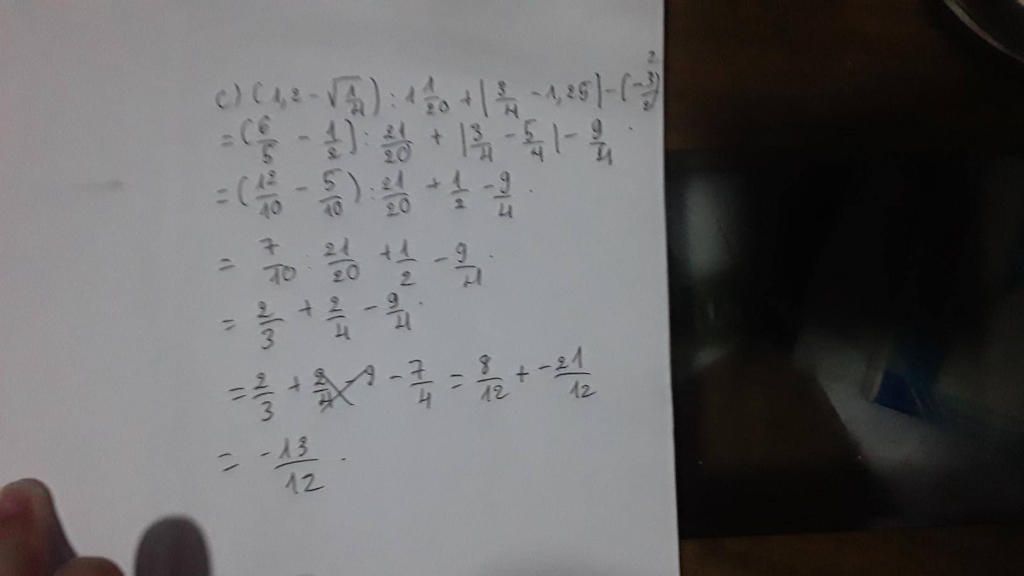 c) (1,2 - √1/4) : 1 1/20 + |3/4 - 1,25| - (-3/2)²
= (6/5 - 1/2) : 21/20 + |3/4 - 5/4| - 9/4 .
= (12/10 - 5/10) : 21/20 + 1/2 - 9/4 .
= 7/10 : 21/20 + 1/2 - 9/4 .
= 2/3 + 2/4 - 9/4 .
= 2/3 + - 7/4 = 8/12 + -21/12
= -13/12 .